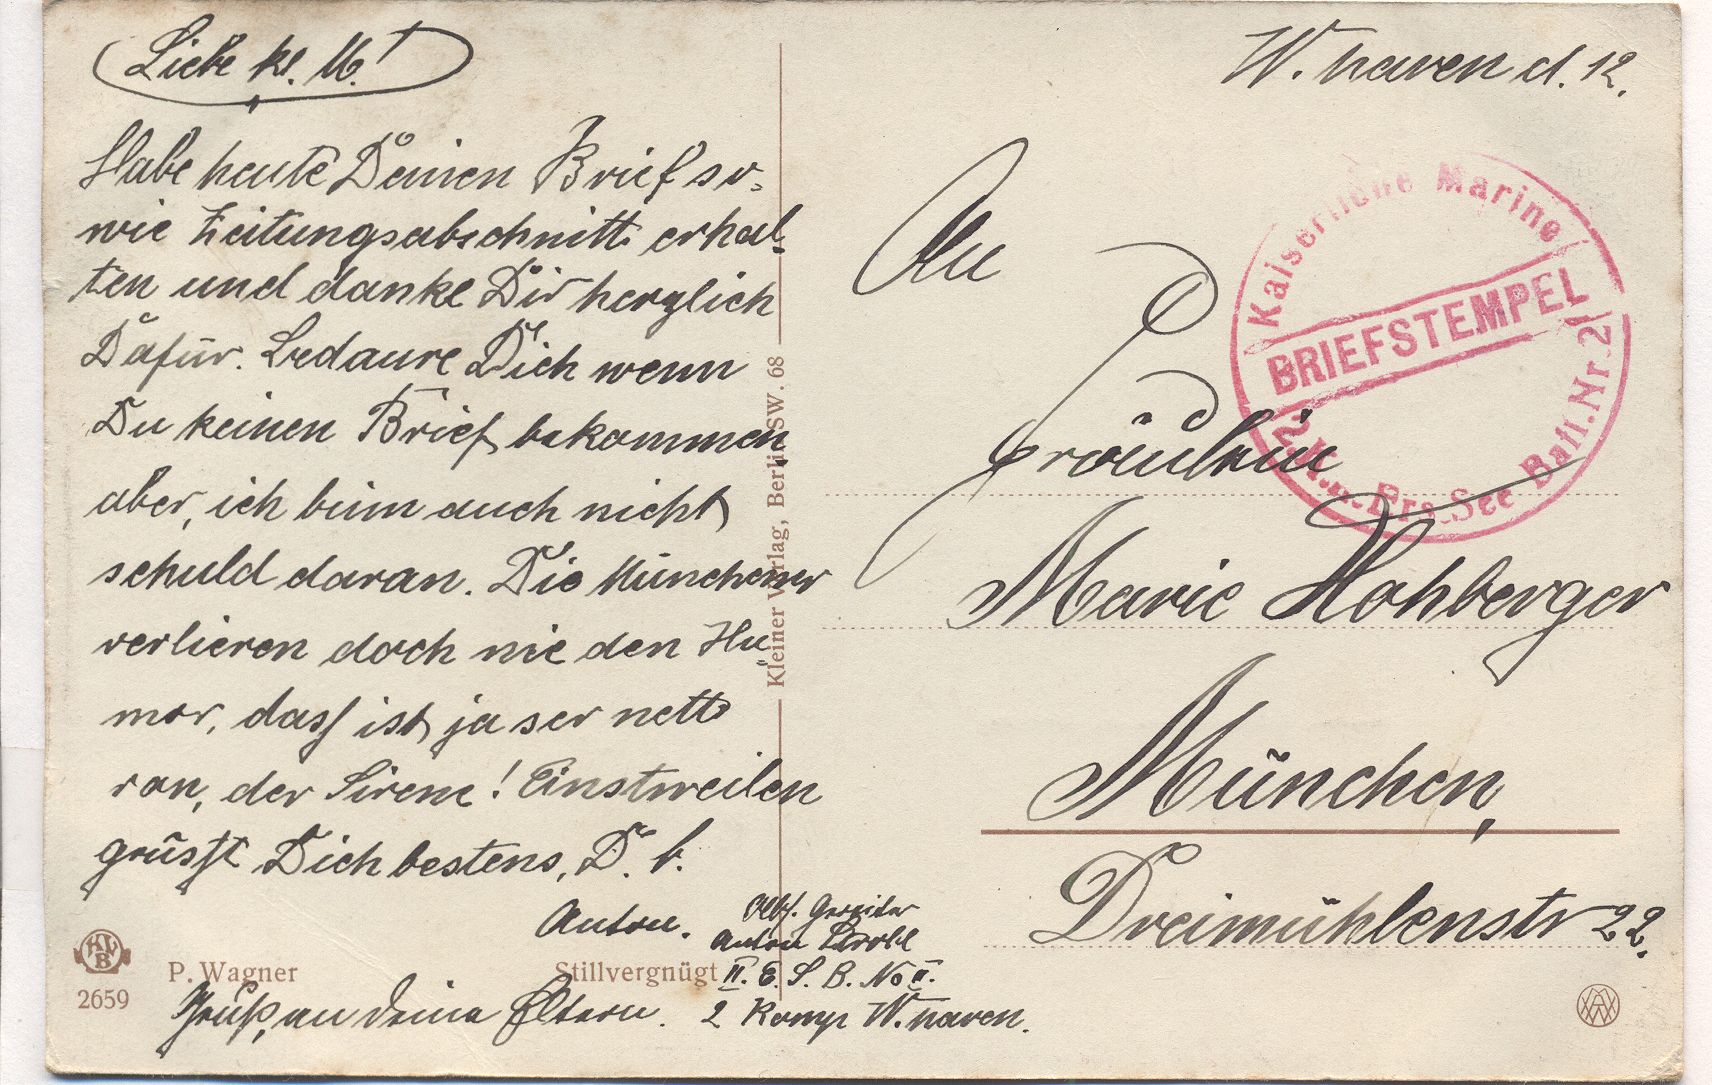 Liebe kl. M.!
Habe heute Deinen Brief so-
wie Zeitungsabschnitt erhal-
ten und danke Dir herzlich
Dafür. Bedaure Dich wenn
Du keinen Brief bekommen,
aber, ich binn auch nicht
schuld daran. Die Münchener
verlieren doch nie den Hu-
mor, dass ist ja ser nett
von, der Sirene! Einstweilen
grüsst Dich bestens, D. b.
Anton.
Gruß, an deine Eltern.
Anton
II. E. S. B. No II.
2 Komp W. haven.
P. Wagner
Stillvergnügt
KLVB
2659
Kleiner Verlag, Berlin SW. 68
W. haven d. 12.
An
Fräulein
Marie Hohberger
München,
Dreimühlenstr 22.
Kaiserliche Marine
BRIEFSTEMPEL
2. K. Ers. See Batl. Nr. 2